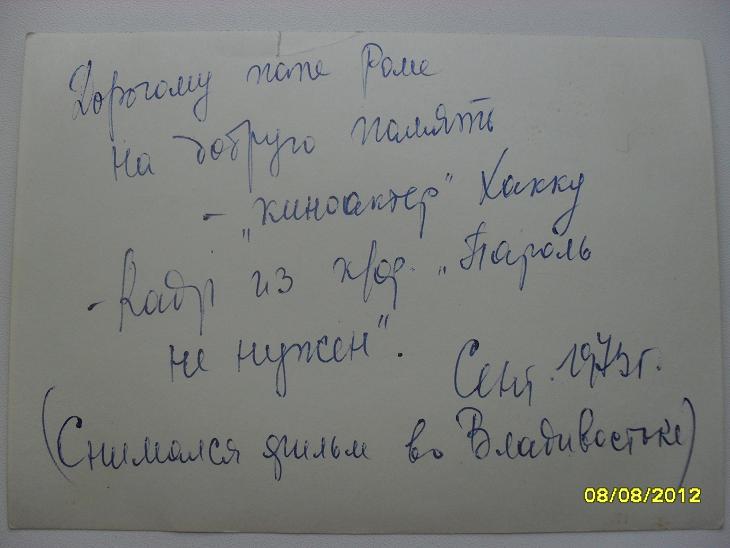 Дорогому папе Роме
на добрую память
- "киноактер" Хакку
- Кадр из худ. "Пароль
не нужен".
Сент. 1975г.
(Снимался фильм во Владивостоке)
08/08/2012